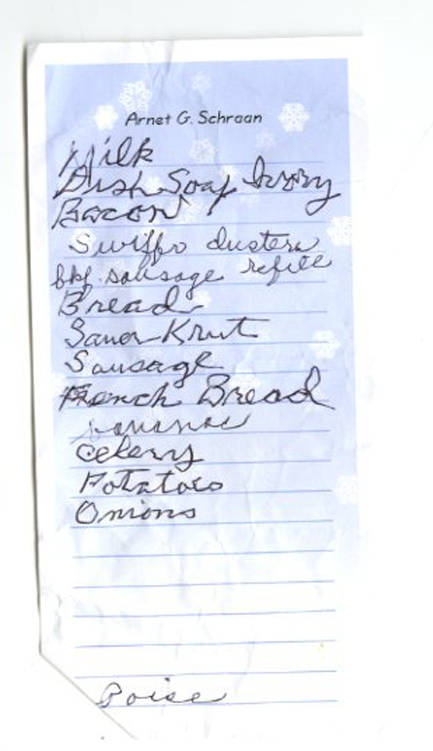 Arnet G. Schraan
Milk
Dish Soap Ivory
Bacon
Swiffr dusters
bkf. sausage refill
Bread
Sauer Kraut
Sausage
French Bread
bananas
Celery
Potatoes
Onions
Poise